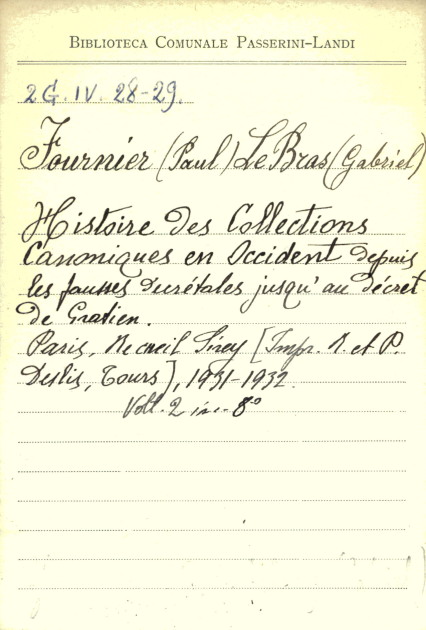 BIBLIOTECA COMUNALE PASSERINI-LANDI
2 G. IV. 28-29.
Fournier (Paul) Le Bras (Gabriel)
Histoire des Collections
Canoniques en Occident depuis
les fausses Decrétales jusqu'au décret
de Gratien.
Paris, Recueil Sirey [Impr. A. et P.
Deslis, Tours], 1931-1932.
Voll. 2 in-8°